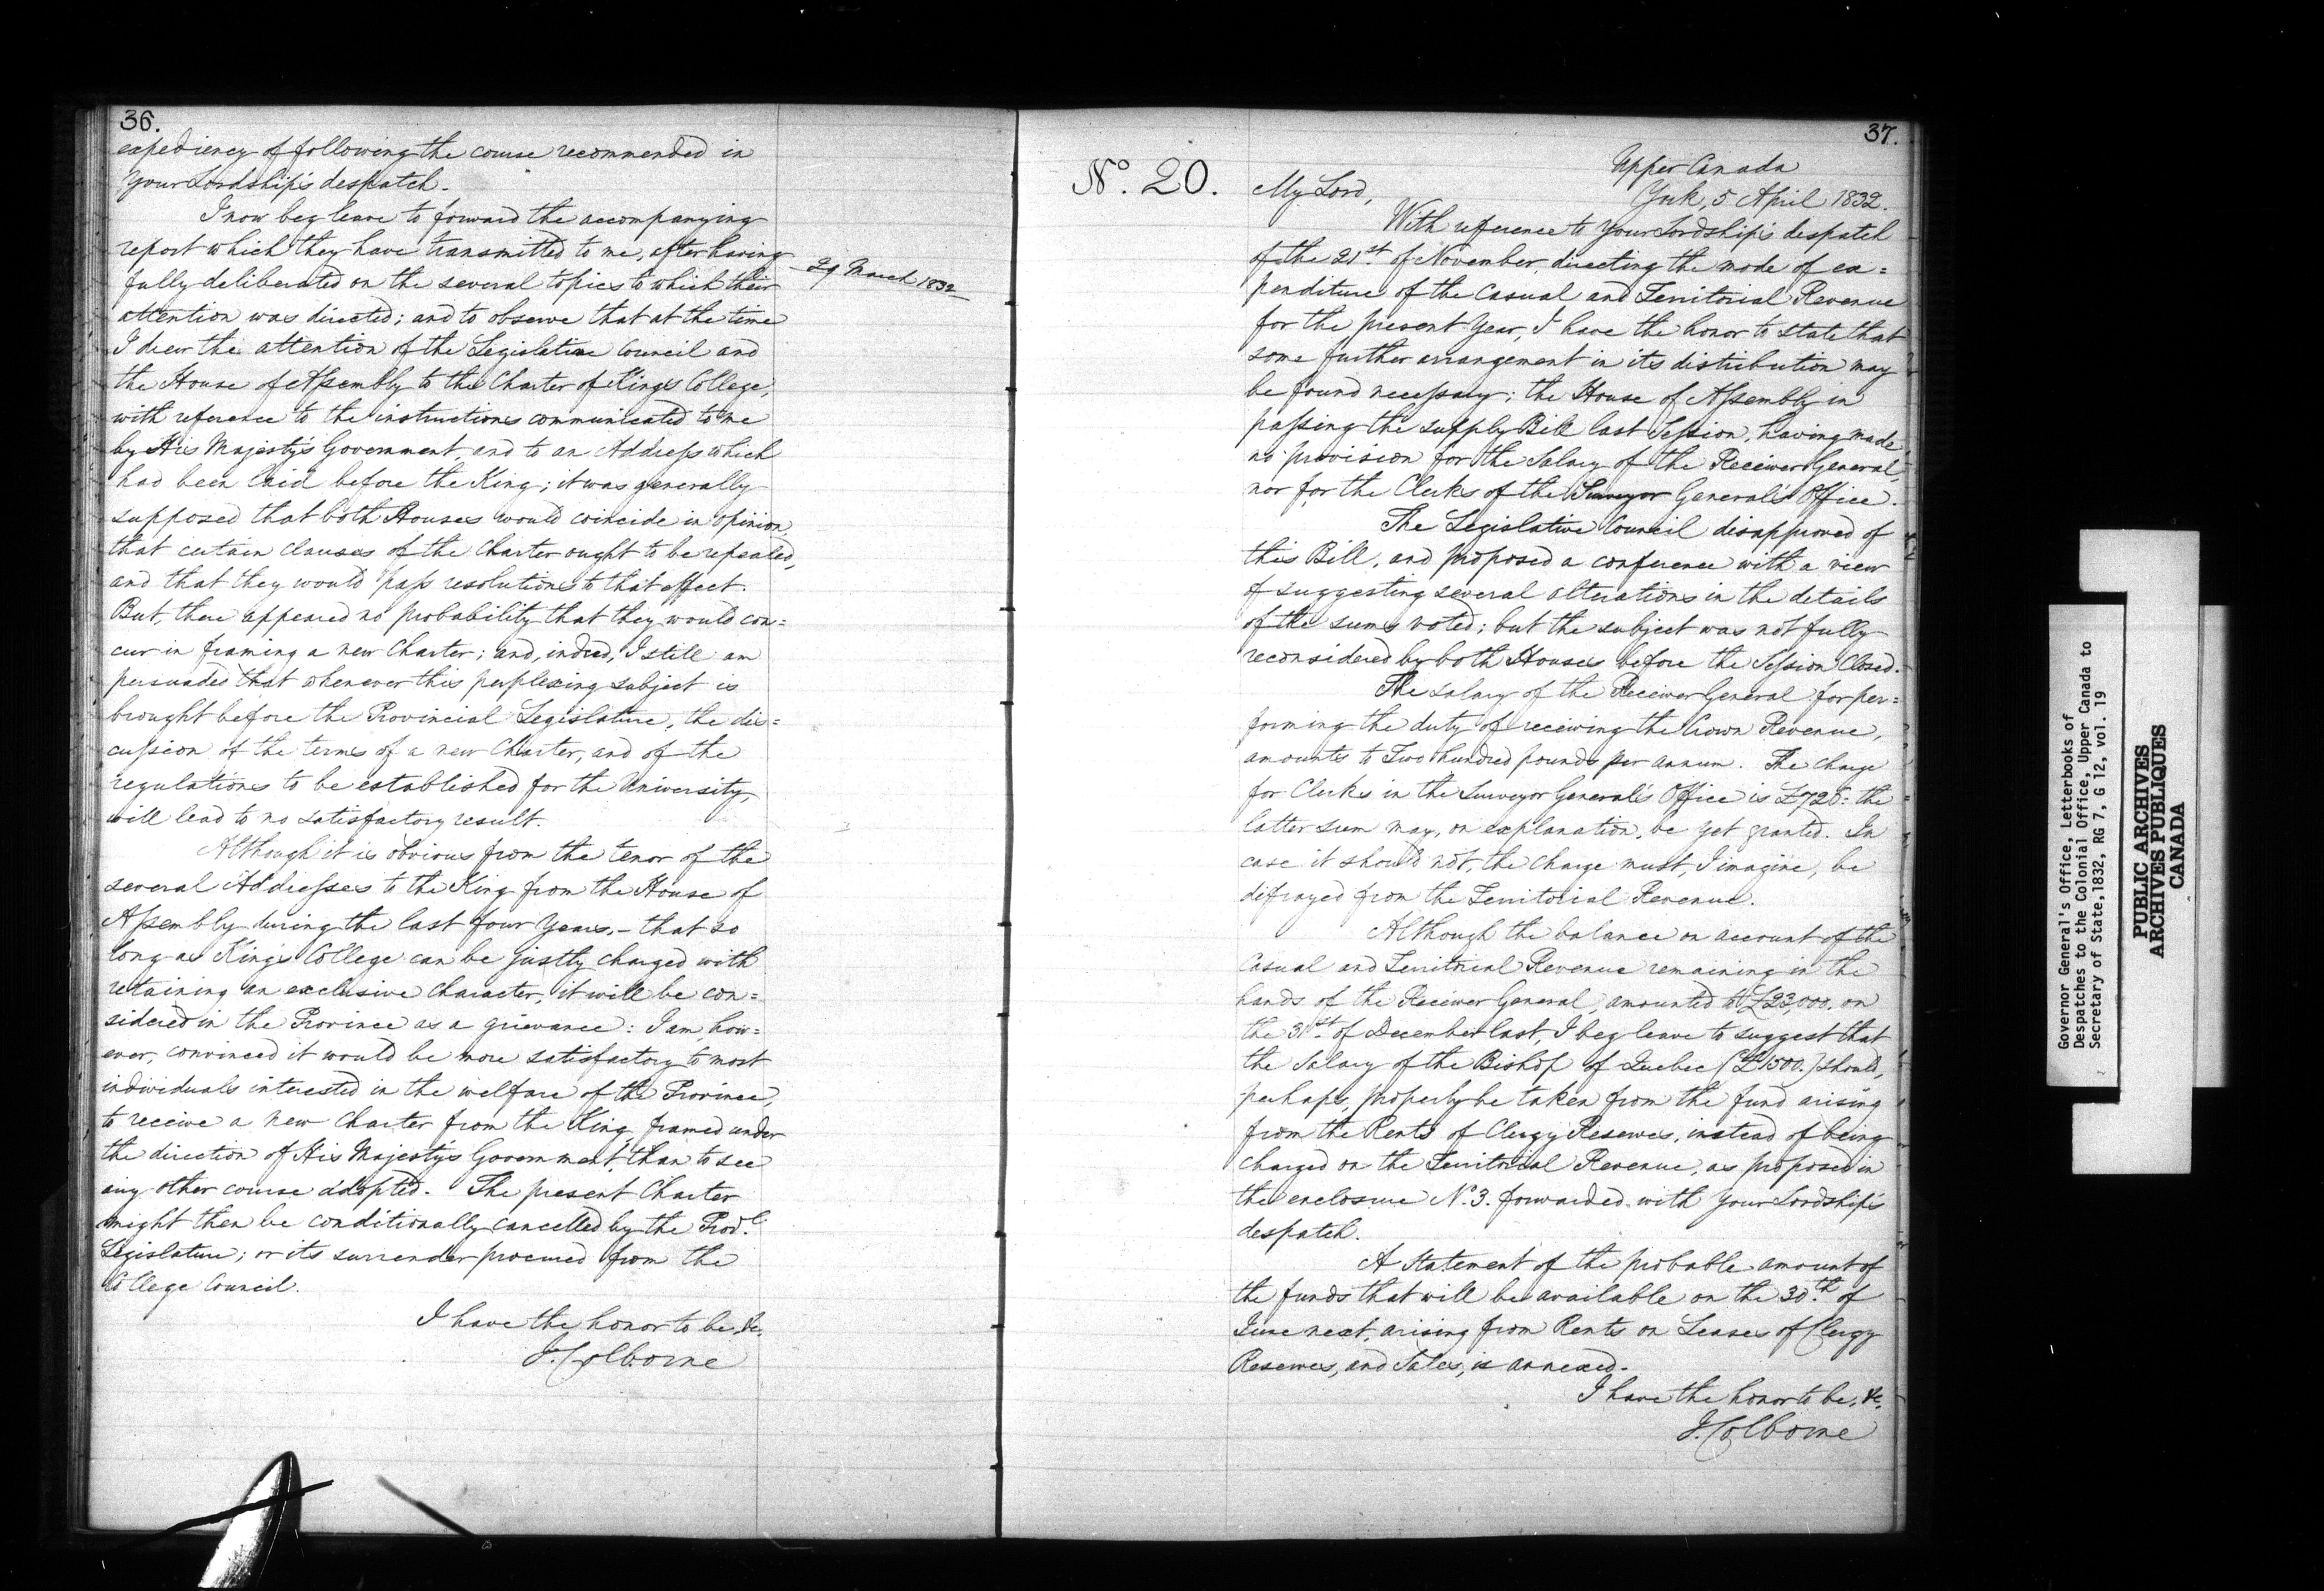 36.
expediency of following the course recommended in
Your Lordship's despatch.
I now beg leave to forward the accompanying
report which they have transmitted to me, after having
29 March 1832
fully deliberated on the several topics to which their
attention was directed; and to observe that at the time
I drew the attention of the Legislative Council and
the House of Assembly to the Charter of King's College,
with reference to the instructions communicated to me
by His Majesty's Government, and to an Address which
had been laid before the King; it was generally
supposed that both Houses would coincide in opinion,
that certain clauses of the Charter ought to be repealed,
and that they would pass resolutions to that effect.
But, there appeared no probability that they would con=
cur in framing a new Charter; and, indeed, I still am
persuaded that whenever this perplexing subject is
brought before the Provincial Legislature, the dis=
cussion of the terms of a new Charter, and of the
regulations to be established for the University,
will lead to no satisfactory result.
Although it is obvious from the tenor of the
several Addresses to the King from the House of
Assembly during the last four Years,- that so
long as King's College can be justly charged with
retaining an exclusive character, it will be con=
sidered in the Province as a grievance: I am, how=
ever, convinced it would be more satisfactory to most
individuals interested in the welfare of the Province,
to receive a new Charter from the King framed under
the direction of His Majesty's Government, than to see
any other course adopted. The present Charter
might then be conditionally cancelled by the Prov.l
Legislature; or its surrender procured from the
College Council.
I have the honor to be, &c.
J. Colborne
37.
No. 20.
Upper Canada
York, 5 April 1832.
My Lord,
With reference to Your Lordship's despatch
of the 21st of November, directing the mode of ex=
penditure of the Casual and Territorial Revenue
for the present Year, I have the honor to state that
some further arrangement in its distribution may
be found necessary; the House of Assembly in
passing the supply Bill last Session, having made
no provision for the Salary of the Receiver General,
nor for the Clerks of the Surveyor General's Office.
The Legislative Council disapproved of
this Bill, and proposed a conference with a view
of suggesting several alterations in the details
of the sums voted; but the subject was not fully
reconsidered by both Houses before the Session Closed.
The salary of the Receiver General for per=
forming the duty of receiving the Crown Revenue,
amounts to Two hundred pounds per annum. The charge
for Clerks in the Surveyor General's Office is £726: the
latter sum may, on explanation, be yet granted. In
case it should not, the charge must, I imagine, be
defrayed from the Territorial Revenue.
Although the balance on account of the
Casual and Territorial Revenue remaining in the
hands of the Receiver General, amounted to £23,000. on
the 31st of December last, I beg leave to suggest that
the Salary of the Bishop of Quebec (£1500.) should,
perhaps, properly be taken from the fund arising
from the Rents of Clergy Reserves, instead of being
charged on the Territorial Revenue, as proposed in
the enclosure N. 3. forwarded with Your Lordship's
despatch.
A Statement of the probable amount of
the funds that will be available on the 30th of
June next, arising from Rents on Leases of Clergy
Reserves, and Sales, is annexed.
I have the honor to be, &c.
J. Colborne
Governor General's Office, Letterbooks of
Despatches to the Colonial Office, Upper Canada to
Secretary of State, 1832, RG 7, G 12, vol. 19
PUBLIC ARCHIVES
ARCHIVES PUBLIQUES
CANADA